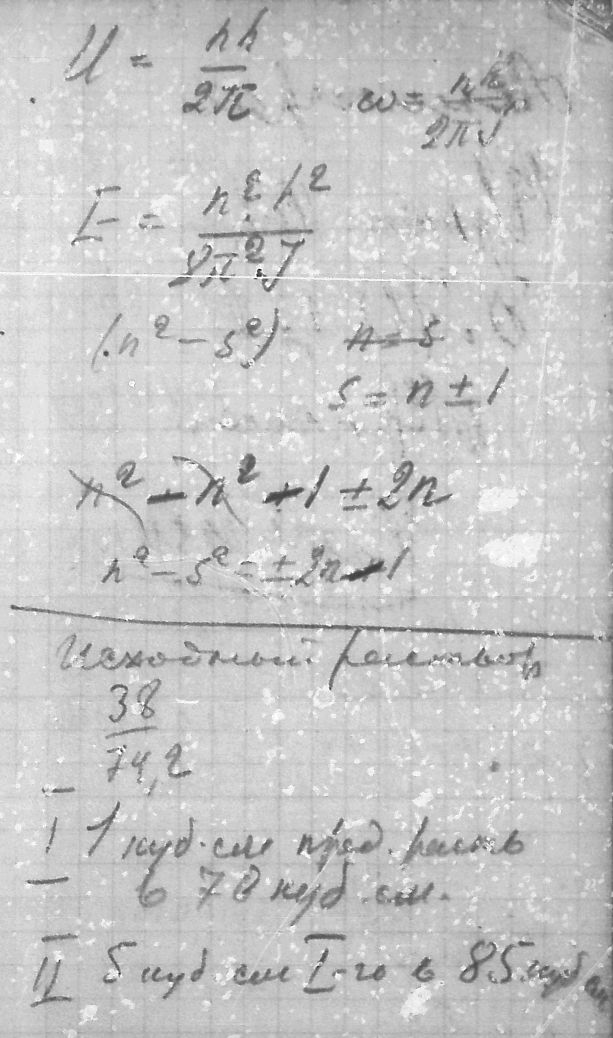 U = nh / 2π
ω = nh / 2πJ
E = n² h² / 8π² J
(n² - s²) n = s
s = n ± 1
n² - n² - 1 ± 2n
n² - s² = ± 2n - 1
Исходный раствор
38 / 74,2
I 1 куб. см пред. раств
в 78 куб см.
II 5 куб см I-го в 85 куб см